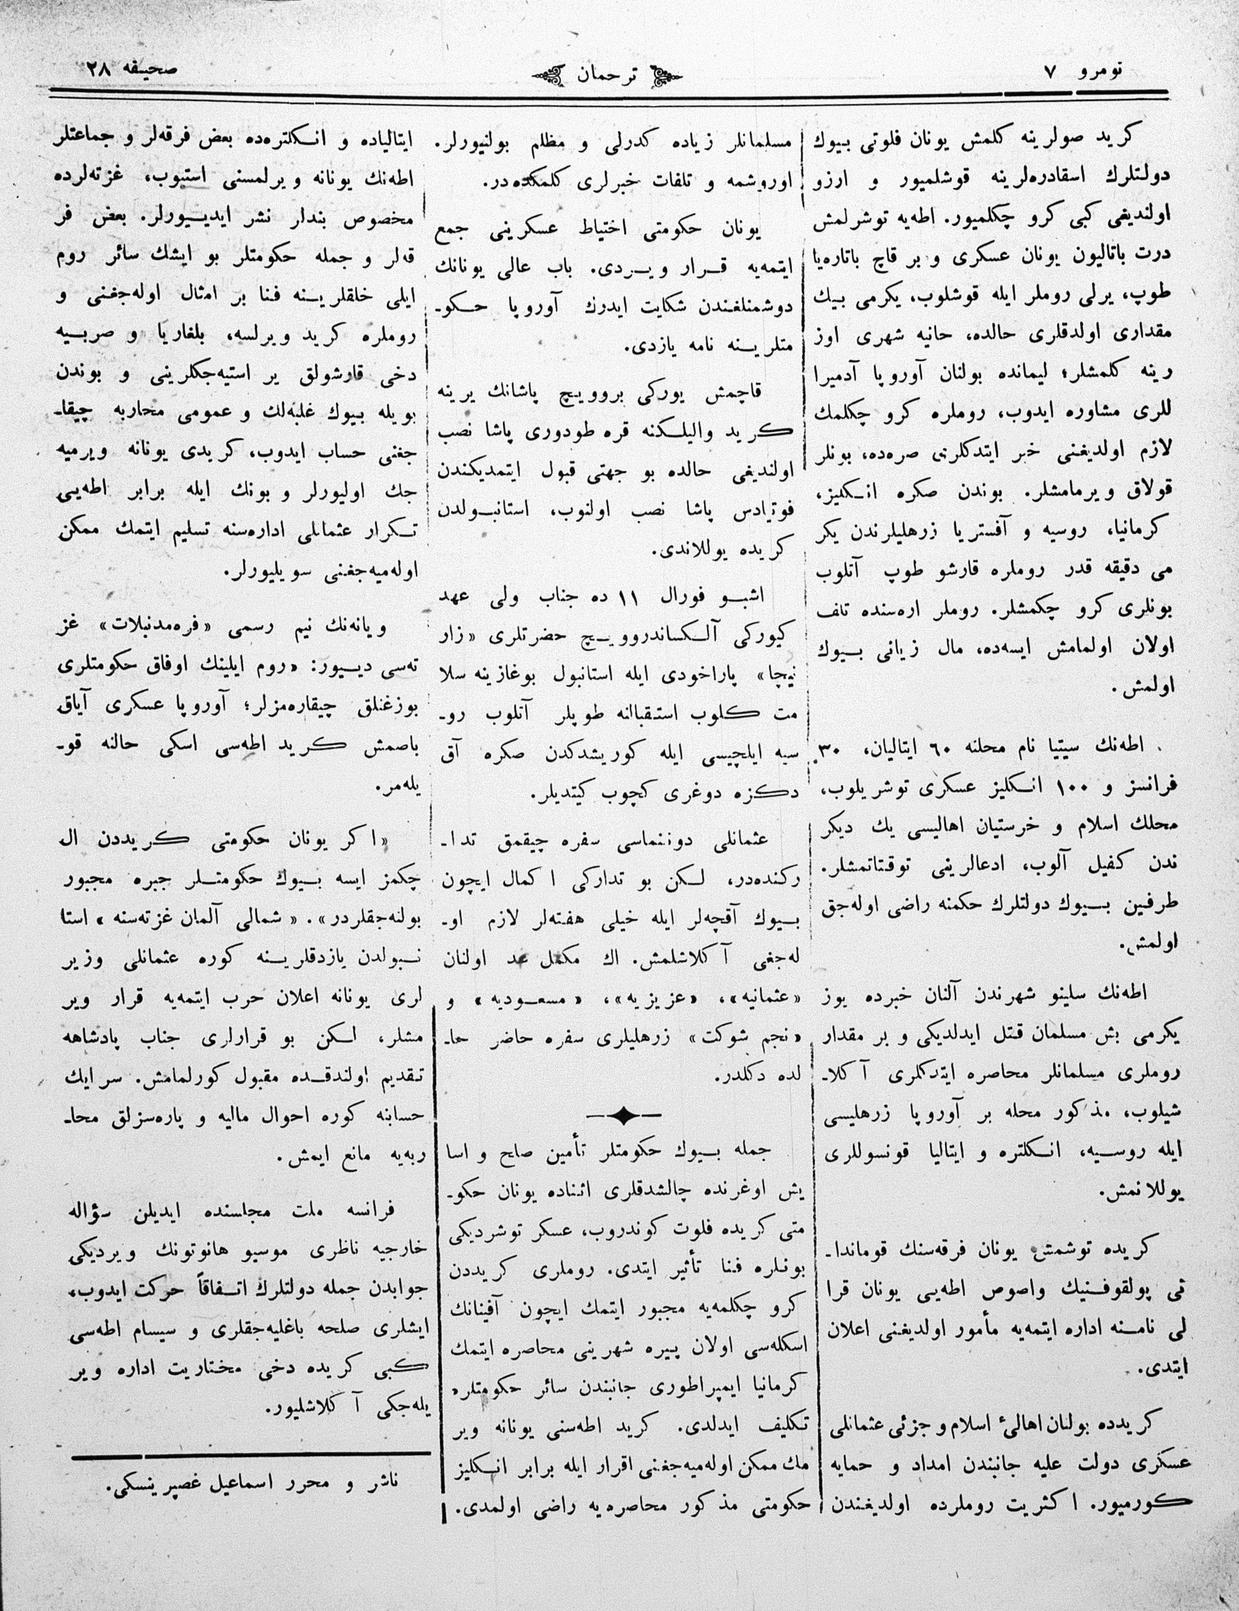 نومرو ٧
ترجمان
صحيفه ٢٨
كريد صولرينه كلمش يونان فلوتى بيوك
دولتلرك اسقادره‌لرينه قوشلميور و ارزو
اولنديغى كبى كرو چكلميور. اطه‌يه توشرلمش
درت باتاليون يونان عسكرى و بر قاچ باتاره‌يا
طوپ، يرلى روملر ايله قوشلوب، يكرمى بيك
مقدارى اولدقلرى حالده، حانيه شهرى اوز
رينه كلمشلر؛ ليمانده بولنان آوروپا آدميرا
للرى مشاوره ايدوب، روملره كرو چكلمك
لازم اولديغنى خبر ايتدكلرى صره‌ده، بونلر
قولاق ويرمامشلر. بوندن صكره انـكليز،
كرمانيا، روسيه و آفستريا زرهليلرندن يكر
مى دقيقه قدر روملره قارشو طوپ آتلوب
بونلرى كرو چكمشلر. روملر اره‌سنده تلف
اولان اولمامش ايسه‌ده، مال زيانى بـيوك
اولمش.
اطه‌نك سيتيا نام محلنه ٦٠ ايتاليان، ٣٠
فرانسز و ١٠٠ انـكليز عسكرى توشريلوب،
محلك اسلام و خرستيان اهاليسى يك ديكر
ندن كفيل آلوب، ادعالرينى توقتاتمشلر.
طرفين بـيوك دولتلرك حكمنه راضى اوله‌جق
اولمش.
اطه‌نك سلينو شهرندن آلنان خبرده يوز
يكرمى بش مسلمان قتل ايدلديكى و بر مقدار
روملرى مسلمانلر محاصره ايتدكلرى آكلا-
شيلوب، مذكور محله بر آوروپا زرهليسى
ايله روسـيه، انـكلتره و ايتاليا قونسوللرى
يوللانمش.
كريده توشمش يونان فرقه‌سنك قوماندا-
نى پولقوفـنيك واصوص اطه‌يى يونان قرا
لى نامـنه اداره ايتمه‌يه مأمور اولديغنى اعلان
ايتدى.
كريدده بولنان اهالىٔ اسلام و جزئى عثمانلى
عسكرى دولت عليه جانبندن امداد و حمايه
كورميور. اكثريت روملرده اولديغندن
مسلمانلر زياده كدرلى و مظلم بولنيورلر.
اوروشمه و تلفات خبرلرى كلمكده‌در.
يونان حكومتى اختياط عسكرينى جمع
ايتمه‌يه قـرار ويـردى. باب عالى يونانك
دوشمنلغندن شكايت ايدرك آوروپا حـكو-
متلريـنه نامه يازدى.
قاچمش يوركى بروويـچ پاشانك يرينه
كريد واليلـكنه قره طودورى پاشا نصب
اولنديغى حالده بو جهتى قبول ايتمديكندن
فوتيادس پاشا نصب اولنوب، استانـبولدن
كريده يوللاندى.
اشبـو فورال ١١ ده جناب ولى عهد
كيوركى آلـكساندروويـچ حضرتلرى «زار
نيچا» پاراخودى ايله استانبول بوغازينه سلا
مت كلوب استقبالنه طوپلر آتلوب رو-
سيه ايلچيسى ايله كوريشدكدن صكره آق
دكزه دوغرى كچوب كيتديلر.
عثمانلى دوننماسى سفره چيقمق تدا-
ركنده‌در، لـكن بو تداركى اكمال ايچون
بـيوك آقچه‌لر ايله خيلى هفته‌لر لازم او-
له‌جغى آكلاشلمش. اك مكمل عد اولنان
«عثمانيه»، «عزيزيه»، «مسعوديه» و
«نجم شوكت» زرهليلرى سفره حاضر حا-
لده دكلدر.
جمله بـيوك حكومتلر تأمين صلح و اسا
يش اوغرنده چالشدقلرى اثناده يونان حكو-
متى كريده فلوت كوندروب، عسكر توشرديكى
بونـلره فنا تأثير ايتدى. روملرى كريددن
كرو چكلمه‌يه مجبور ايتمك ايچون آفينانك
اسكله‌سى اولان پيره شهرينى محاصره ايتمك
كرمانيا ايمپراطورى جانبندن سائر حكومتلره
تكليف ايدلدى. كريد اطه‌سنى يونانه وير
مك ممكن اوله‌ميه‌جغنى اقرار ايله برابر انـكليز
حكومتى مذكور محاصره‌يه راضى اولمدى.
ايتالياده و انـكلتره‌ده بعض فرقه‌لر و جماعتلر
اطه‌نك يونانه ويرلمسنى استيوب، غزته‌لرده
مخصوص بندلر نشر ايديـيورلر. بعض فر
قه‌لر و جمله حكومتلر بو ايشك سائر روم
ايلى خلقلريـنه فنا بر امثال اوله‌جغنى و
روملره كريد ويرلسه، بلغاريا و صربـيه
دخى قارشولق ير استيه‌جكلرينى و بوندن
بويله بـيوك غلبه‌لك و عمومى محاربه چيقا-
جغنى حساب ايدوب، كريدى يونانه ويرميه
جك اوليورلر و بونك ايله برابر اطه‌يى
تـكرار عثمانلى اداره‌سنه تسليم ايتمك ممكن
اوله‌ميه‌جغنى سويليورلر.
ويانه‌نك نيم رسمى «فره‌مدنبلات» غز
ته‌سى ديـيور: «روم ايلينك اوفاق حكومتلرى
بوزغنلق چيقاره‌مزلر؛ آوروپا عسكرى آياق
باصمش كريد اطه‌سى اسكى حالنه قو-
يله‌مر.
«اكر يونان حكومتى كريددن ال
چكمز ايسه بـيوك حكومتـلر جبره مجبور
بولنه‌جقلردر». «شمالى آلمان غزته‌سنه» استا
نـبولدن يازدقلريـنه كوره عثمانلى وزير
لرى يونانه اعلان حرب ايتمه‌يه قرار وير
مشلر، لـكن بو قرارلرى جناب پادشاهه
تقديم اولندقـده مقبول كورلمامش. سرايك
حسابنه كوره احوال ماليه و پاره‌سزلق محا-
ربه‌يه مانع ايمش.
فرانسه ملت مجلسنده ايديلن سؤاله
خارجيه ناظرى موسيو هانوتونك ويرديكى
جوابدن جمله دولتلرك اتـفاقاً حركت ايدوب،
ايشلرى صلحه باغليه‌جقلرى و سيسام اطه‌سى
كـبى كريده دخى مختاريت اداره وير
يله‌جكى آكلاشليور.
ناشر و محرر اسماعيل غصپرينسكى.